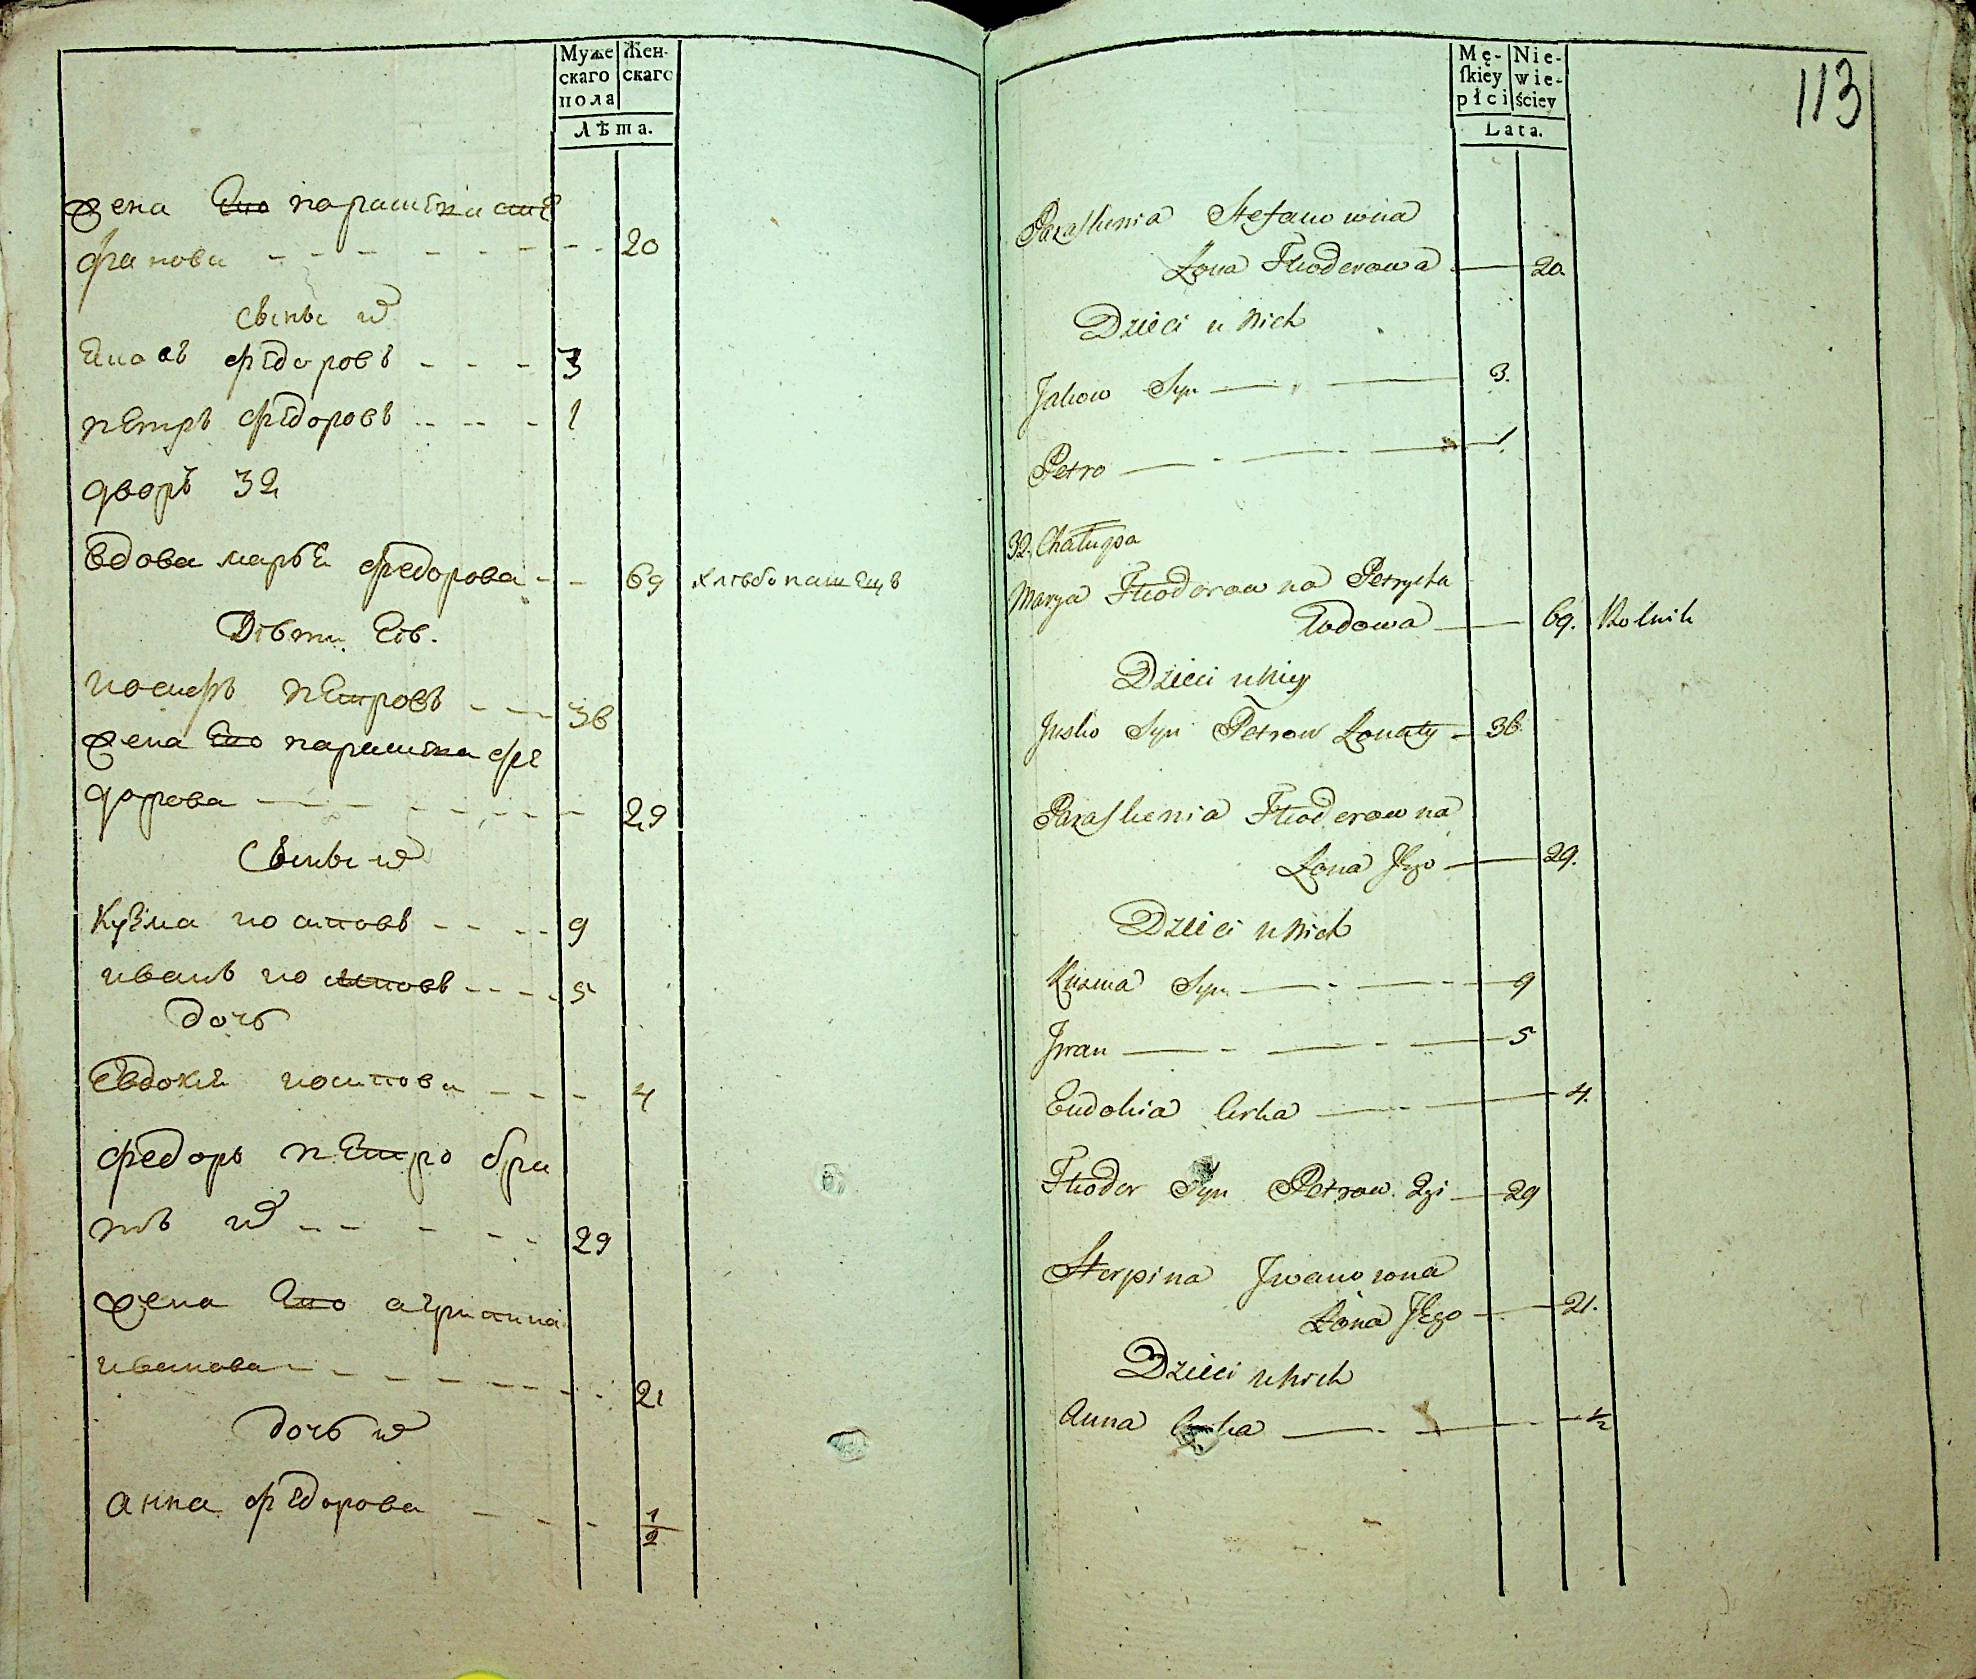 Муже
скаго
пола
Жен-
скаго
Лѣта.
жена Его парасковиа сте
фанова 20
сыны их
Яковъ федоровъ 3
петръ федоровъ 1
дворъ 32
вдова марья федорова 69 хлѣбопашецъ
Дѣти Еѣ.
иосифъ петровъ 36
жена Его парасковиа фе
дорова 29
Сыны их
Кузма иосиповъ 9
иванъ иосиповъ 5
дочь
Евдокия иосипова 4
федоръ петро бра
тъ их 29
жена Его агрипина
иванова 21
дочь их
анна федорова 1/2
113
Mę-
skiey
płci
Nie-
wie-
ściey
Lata.
Paraskenia Stefanowna
Żona Fhodorowa 20.
Dzieci u Nich
Jakow Syn 3.
Petro 1
32. Chałupa
Marya Fhodorowna Petrycha
Wdowa 69. Rolnik
Dzieci u Niey
Jusko Syn Petrow Żonaty 36
Paraskenia Fhoderowna
Żona Jego 29.
Dzieci u Nich
Kuzma Syn 9
Jwan 5
Eudokia Corka 4.
Fhodor Syn Petrow 2gi 29
Horpina Jwanowna
Żona Jego 21.
Dzieci u Nich
Anna Corka 1/2